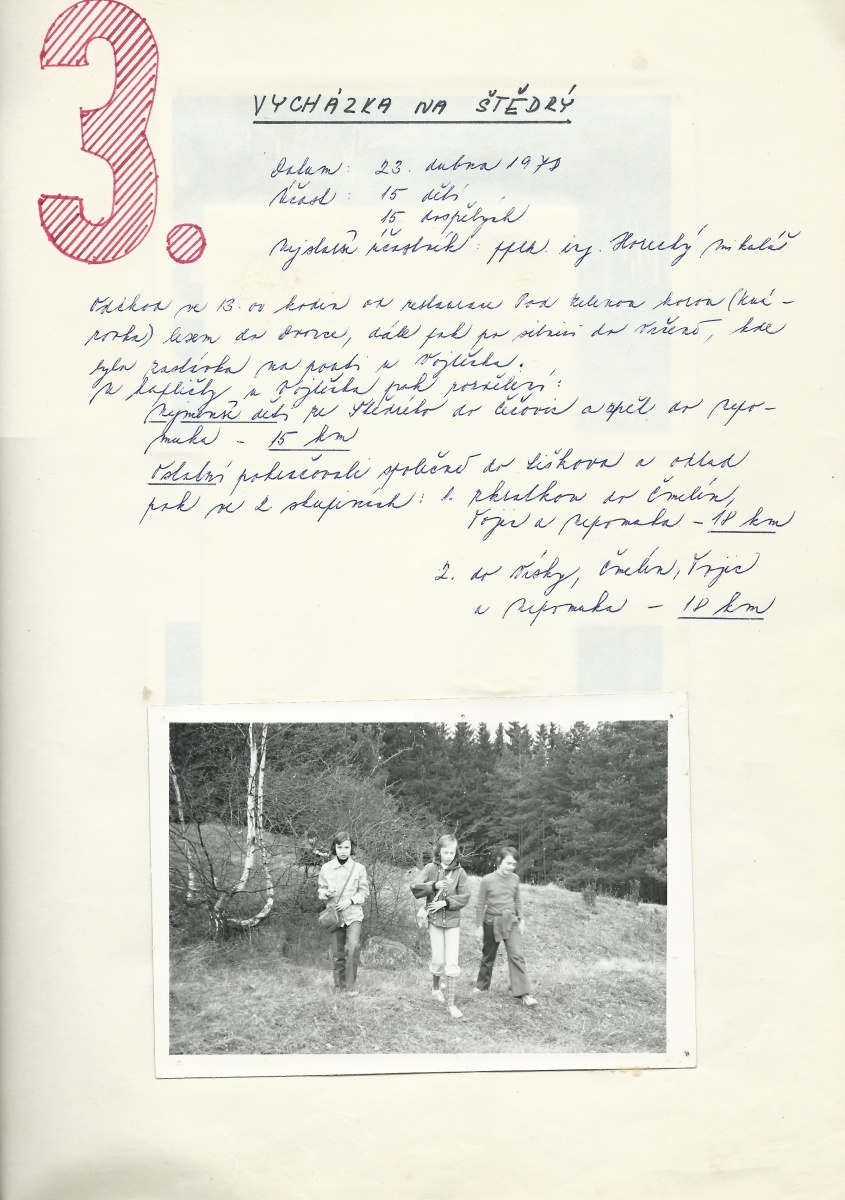 3.
VYCHÁZKA NA ŠTĚDRÝ
Datum: 23. dubna 1978
Účast: 15 dětí
15 dospělých
Nejstarší účastník: pplk. ing. Horecký Mikuláš
Odchod ve 13.00 hodin od restaurace Pod zelenou horou
lesem do Dvorce, dále pak po silnici do kde
byla zastávka na pouti u Vojtěška.
U kapličky u Vojtěška pak rozdělení:
Nejmenší děti ze Štědrého do Čečovic a zpět do Nepo-
muka - 15 km
Ostatní pokračovali společně do Liškova a odtud
pak ve 2 skupinách: 1. zkratkou do Čmelín,
Vojic a Nepomuka - 18 km
2. do Vísky, Čmelín, Vojic
a Nepomuka - 18 km